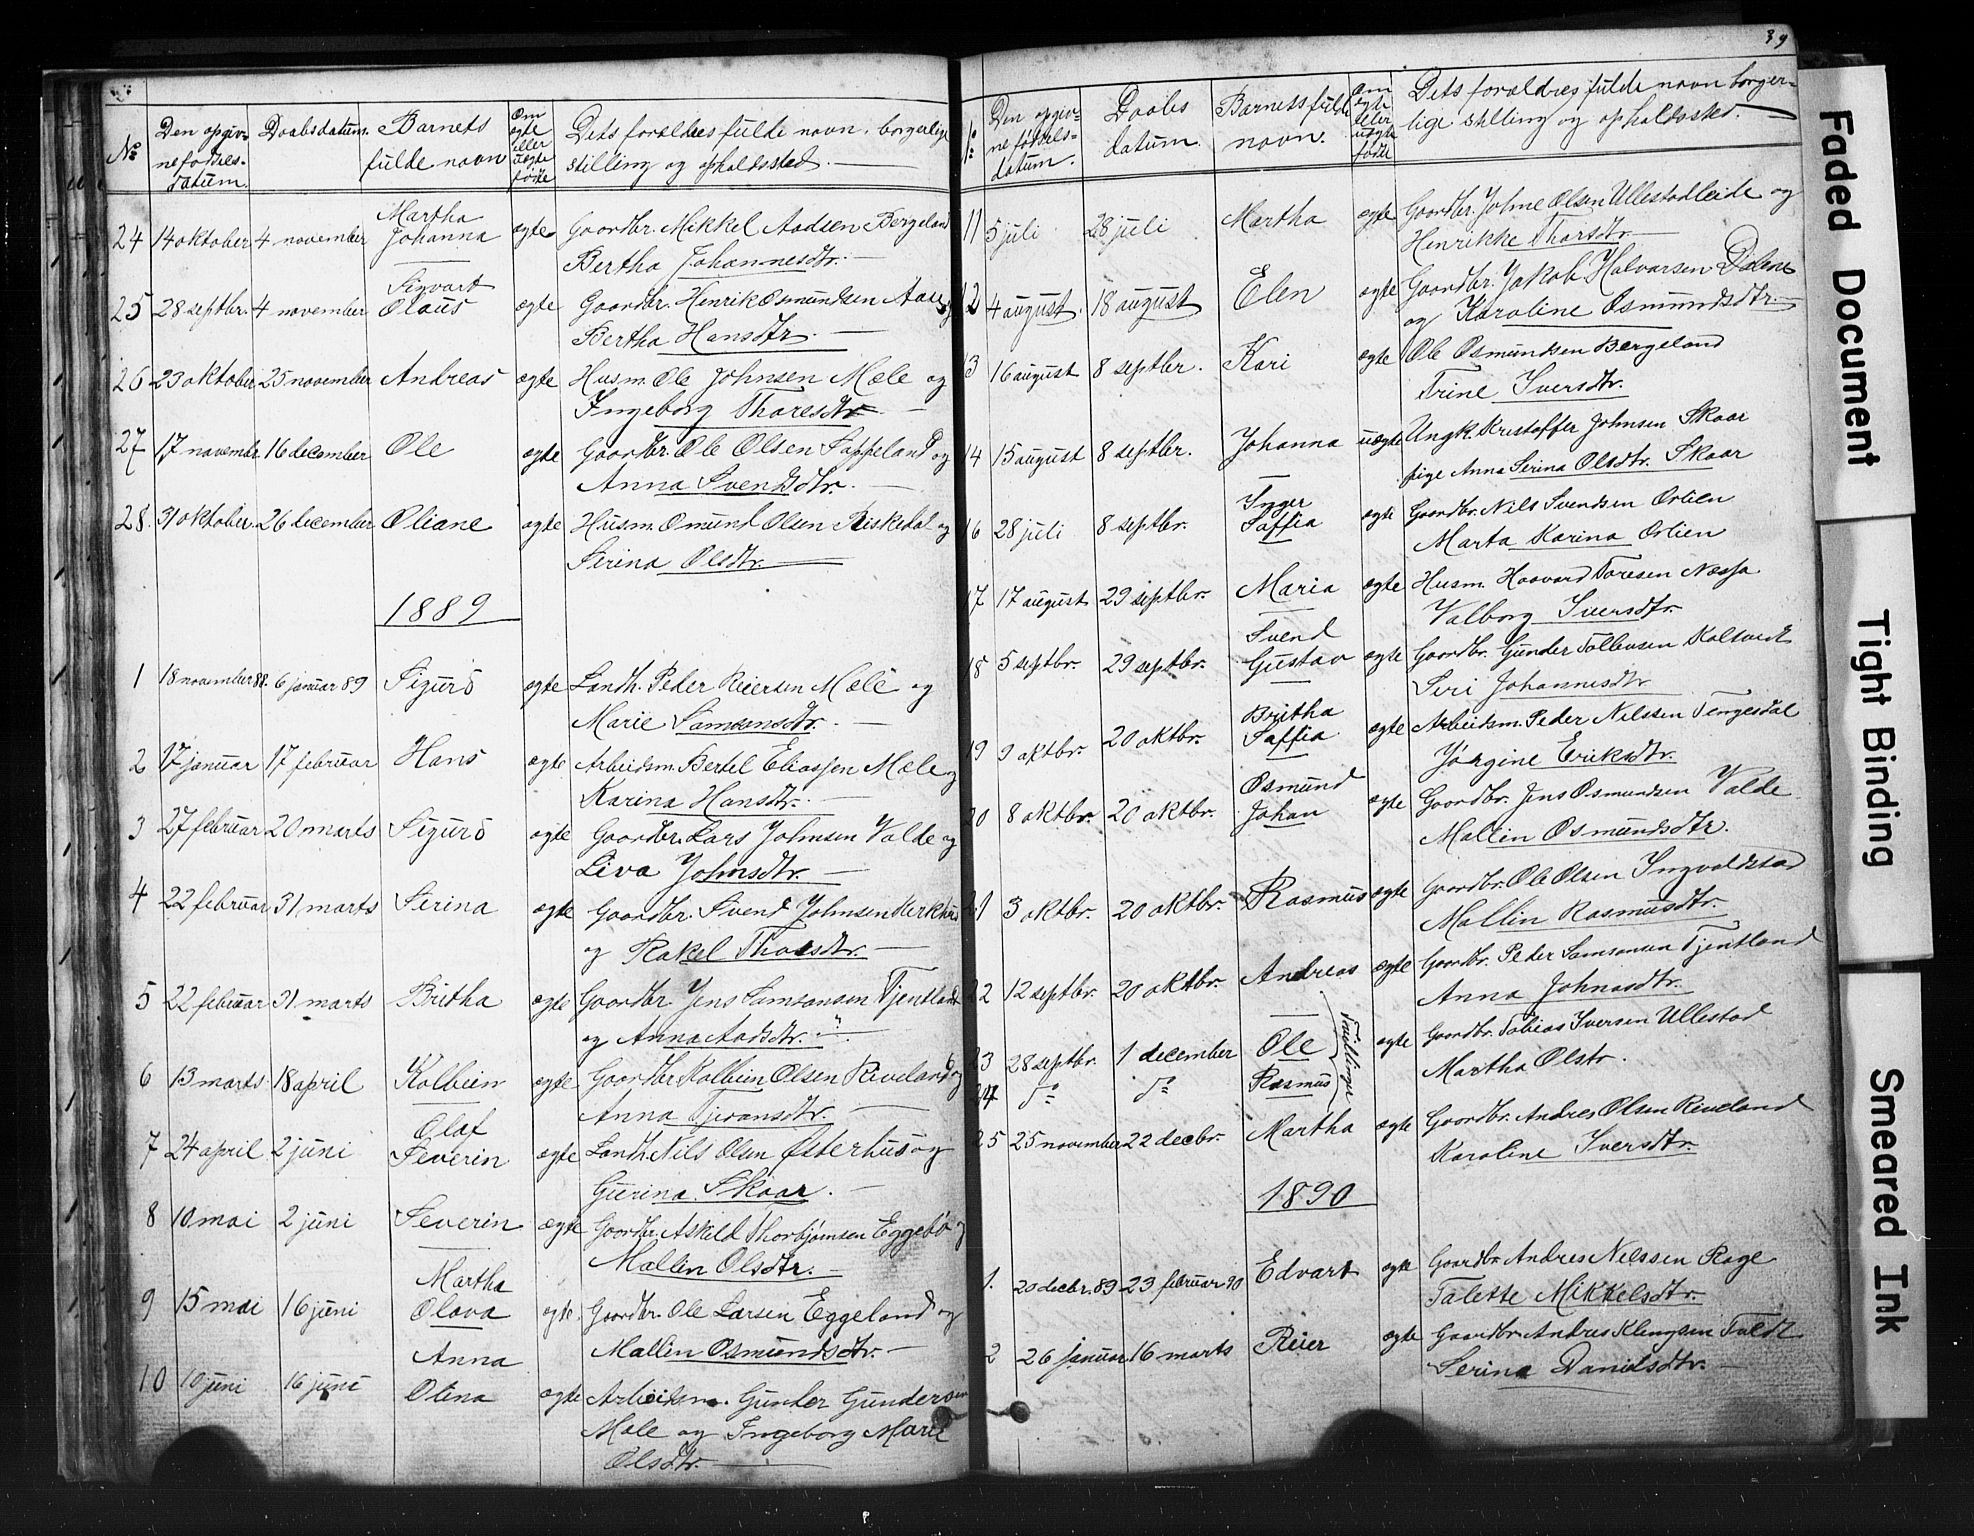 39
Nº Den opgivne fødsels-datum. Daabsdatum. Barnets fulde navn Om ægte eller uægte fødte Dets forældres fulde navn, borgerlige stilling og opholdssted.
24 14 oktober 4 november Martha Johanna ægte Gaardbr. Mikkel Aadsen Bergeland
Bertha Johannesdtr.
25 28 septbr. 4 november Sigvart Olaus ægte Gaardbr. Henrik Osmundsen Aase og
Bertha Hansdtr.
26 23 oktober 25 november Andreas ægte Husm. Ole Johnsen Mæle og
Ingeborg Tharesdtr.
27 17 novembr. 16 december Ole ægte Gaardbr. Ole Olsen Sappeland og
Anna Svendsdtr.
28. 31 oktober. 26 december Oliane ægte Husm. Omund Olsen Riskedal og
Serina Olsdtr.
1889
1 18 november 88. 6 januar 89 Sigurd ægte Landh. Peder Reiersen Mæle og
Marie Samsonsdtr.
2 17 januar 17 februar Hans ægte Arbeidsm. Bertel Eliasjen Mæle og
Karina Hansdtr.
3 27 februar 20 marts Sigurd ægte Gaardbr. Lars Johnsen Valde og
Liva Johnsdtr.
4 22 februar 31 marts Serina ægte Gaardbr. Svend Johnsen
og Rakel Thorsdtr.
5 22 februar 31 marts Britha ægte Gaardbr. Jens Samsonsen Tjentland
og Anna Aadsdtr.
6 13 marts 18 april Kolbein ægte Gaardbr Kolbein Olsen Riveland og
Anna Tjeransdtr.
7 24 april 2 juni Olaf Severin ægte Landh. Nils Olsen Østerhus og
Gurina Skaar.
8 10 mai 2 juni Severin ægte Gaardbr. Askeld Thorbjørnsen Eggebø og
Mallin Olsdtr.
9 15 mai 16 juni Martha Olava ægte. Gaardbr. Ole Larsen Eggeland og
Mallin Osmundsdtr.
10 10 juni 16 juni Anna Olena ægte Arbeidsm. Gunder Gundersen
Mæle og Ingeborg Marie
Olsdtr.
Nº Den opgivne fødsels-datum. Daabs datum. Barnets fulde navn. Om ægte eller uægte født Dets forældres fulde navn borgerlige stilling og opholdssted.
11 5 juli 28 juli Martha ægte Gaardbr. Johne Olsen Ullestadleide og
Henrikke Thorsdtr.
12 4 august. 18 august Elen ægte Gaardbr. Jakob Halvarsen Dalene
og Karoline Osmundsdtr.
13 16 august 8 septbr. Kari ægte Ole Osmundsen Bergeland
Trine Iversdtr.
14 15 august 8 septbr. Johanna uægte Ungk. Kristoffer Johnsen Skaar
pige Anna Serina Olsdtr. Skaar
16 28 juli 8 septbr. Inger Saffia ægte Gaardbr. Nils Svendsen Ørlien
Marta Karina Ørlien
17 17 august 29 septbr. Maria ægte Husm. Haavard Toresen Næssa
Valborg Iversdtr.
18 5 septbr. 29 septbr. Svend Gustav ægte Gaardbr. Gunder Tollevsen Kaltvedt
Siri Johannesdtr
19 9 oktbr. 20 oktbr. Britha Saffia ægte Arbeidsm. Peder Nilssen Tengesdal
Jørgine Eriksdtr.
20 8 oktbr. 20 oktbr. Osmund Johan ægte Gaardbr. Jens Osmundsen Valde
Mallin Osmundsdtr.
21 3 oktbr. 20 oktbr. Rasmus ægte Gaardbr. Ole Olsen Ingvaldstad
Mallin Rasmusdtr.
22 12 septbr. 20 oktbr. Andreas ægte Gaardbr. Peder Samsonsen Tjentland
Anna Johnasdtr.
23 28 septbr. 1 december Ole Tvillinger ægte Gaardbr. Tobias Iversen Ullestad
24 do do Rasmus Martha Olsdtr.
25 25 november 22 decbr. Martha ægte Gaardbr. Andres Olsen Riveland
Karoline Iversdtr.
1890
1. 20 decbr. 89 23 februar 90 Edvart ægte Gaardbr Andres Nilssen Rage
Talette Mikkelsdtr.
2 26 januar 16 marts Reier ægte Gaardbr. Andres Klungsen Tveidt
Serina Danielsdtr.
Faded Document
Tight Binding
Smeared Ink